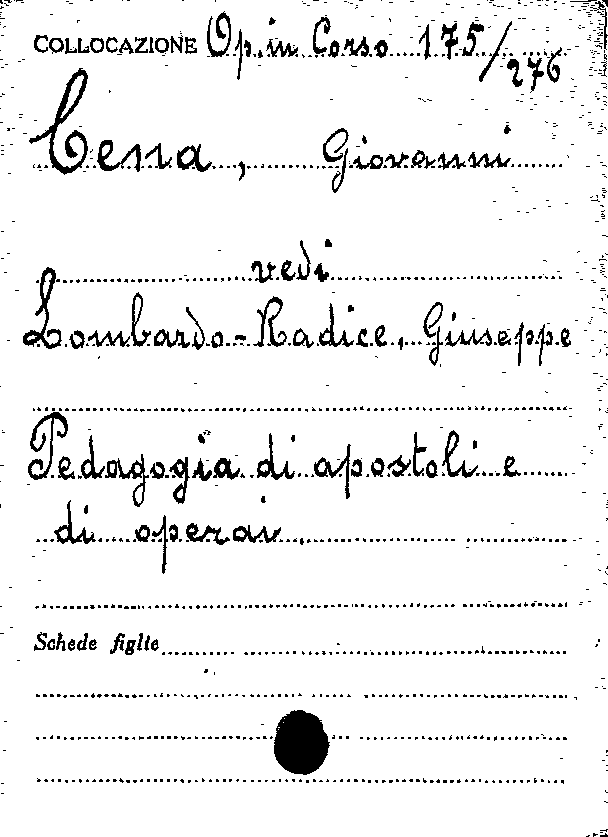 COLLOCAZIONE Op. in Corso 175/276
Cena, Giovanni
vedi
Lombardo-Radice, Giuseppe
Pedagogia di apostoli e
di operai.
Schede figlie